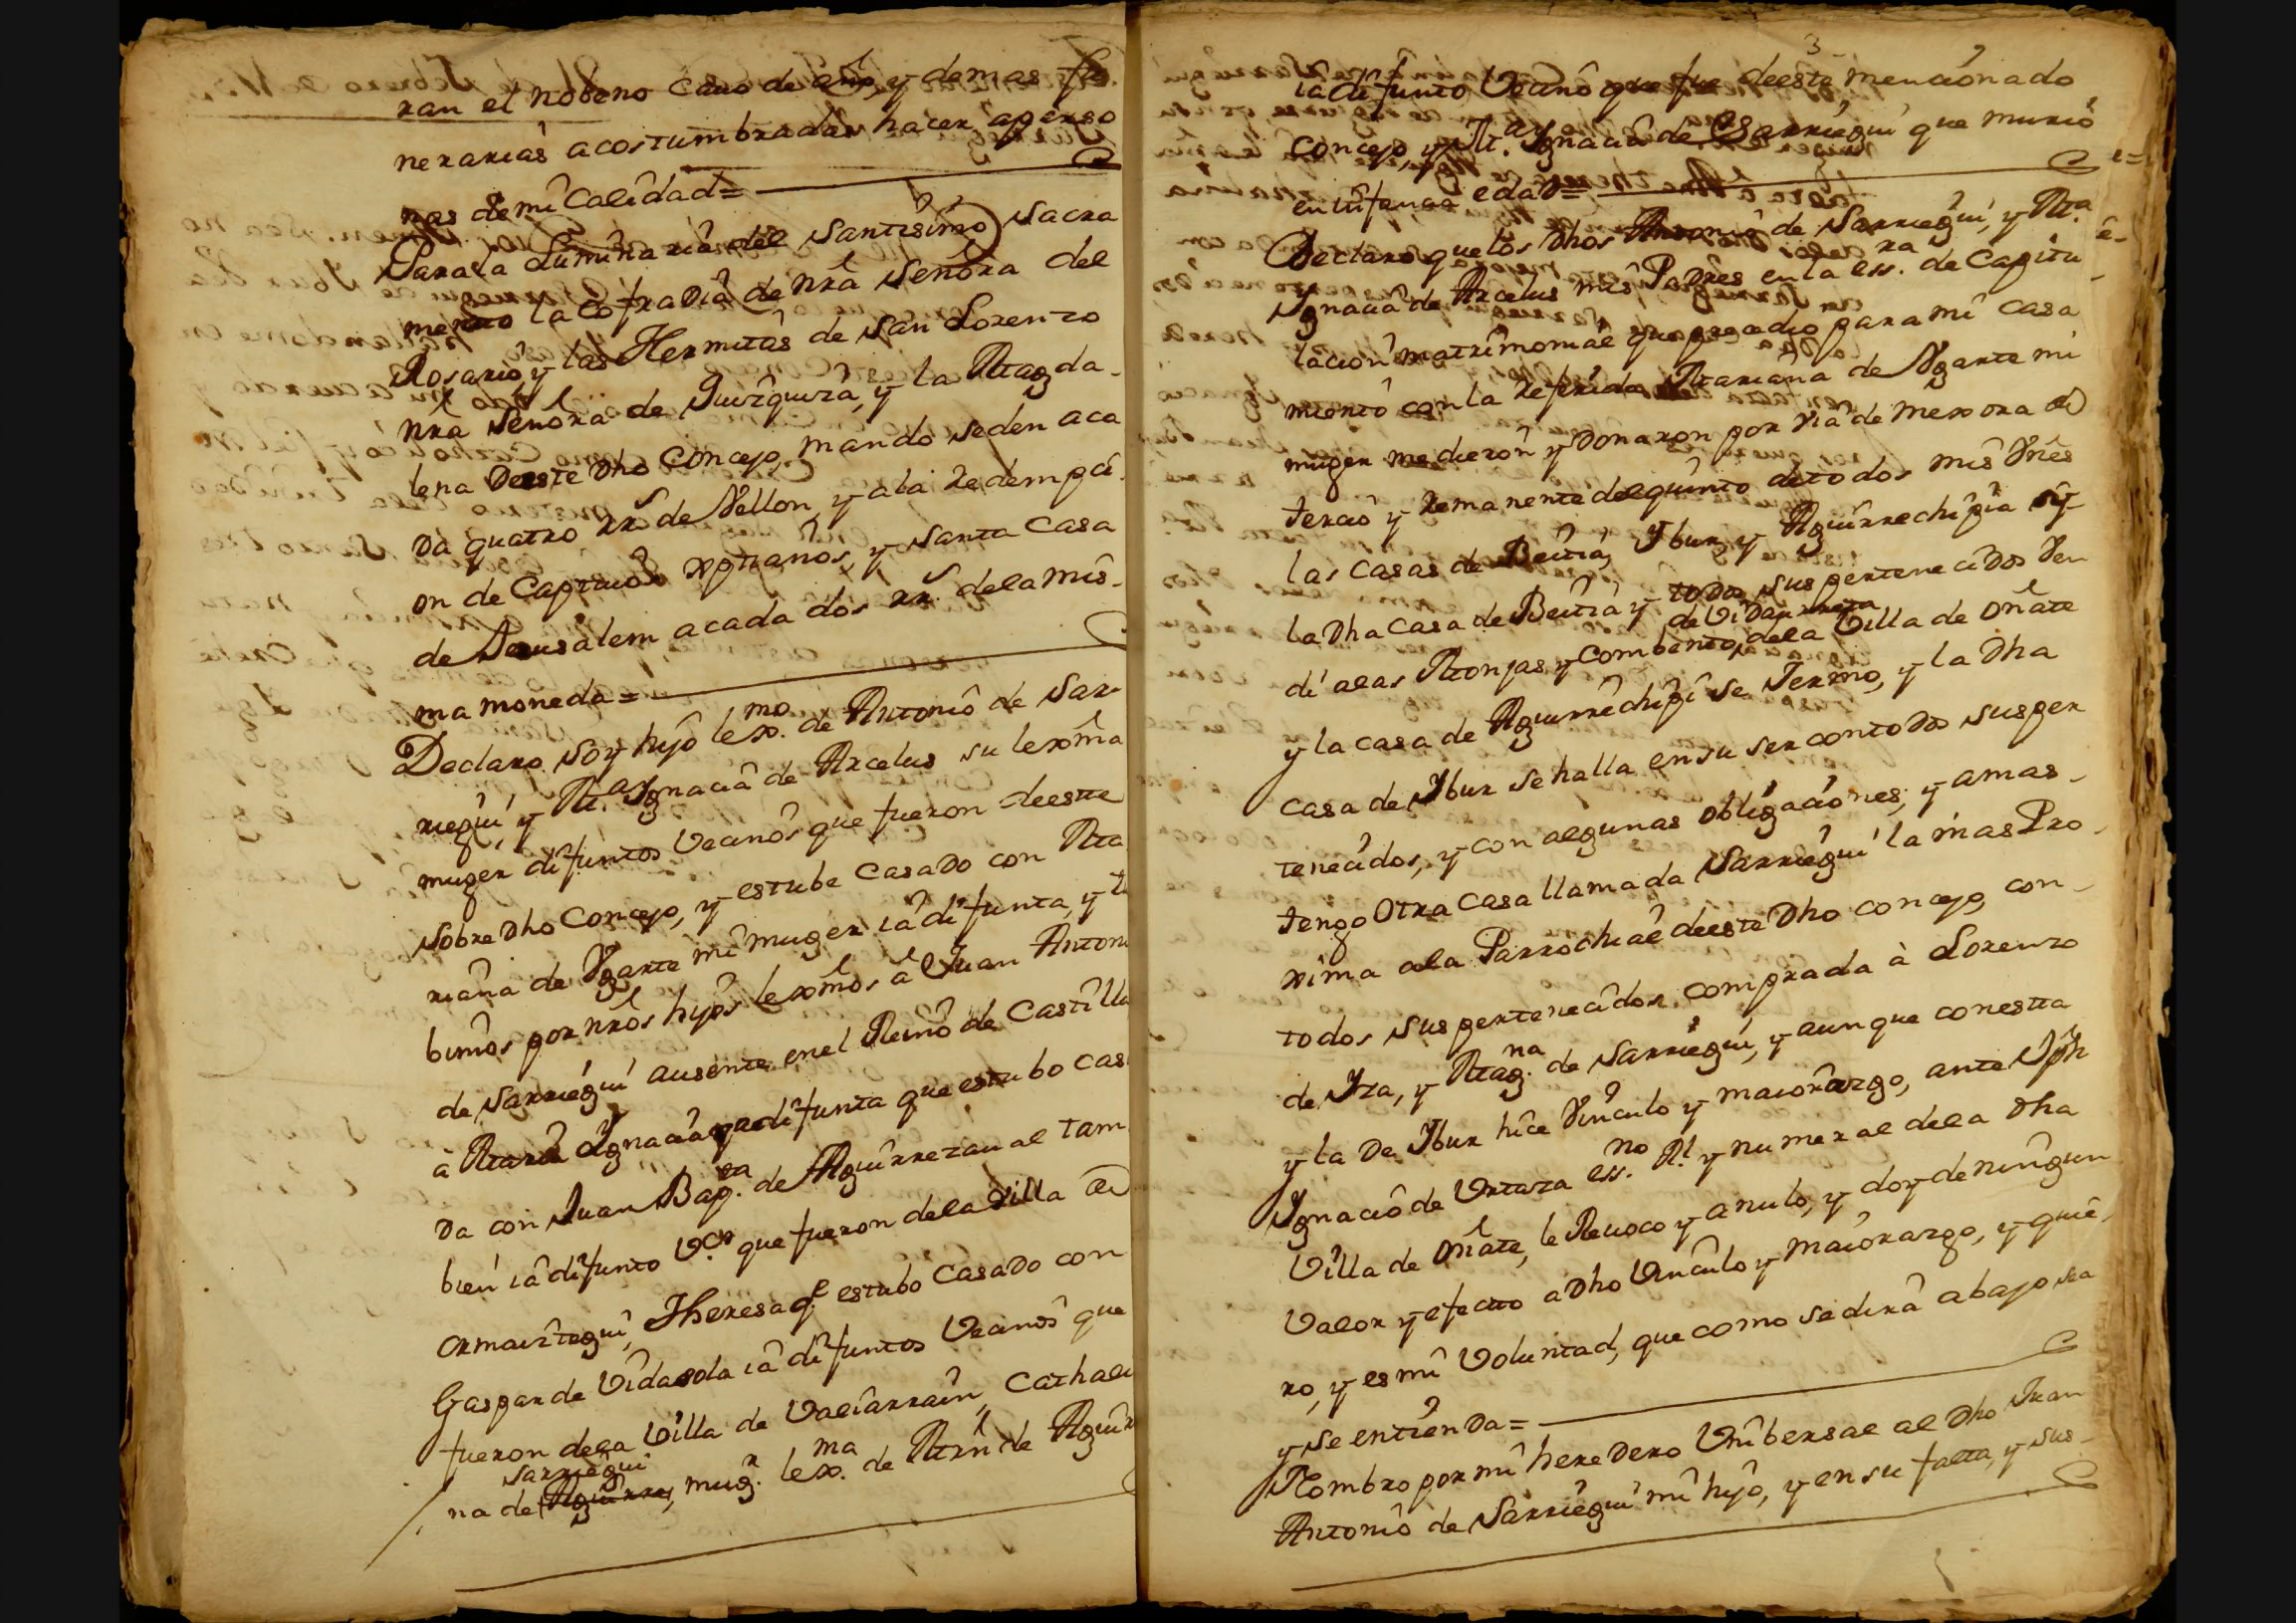 ran el nobeno cavo de año, y demas fu
nerarias acostumbradas hacer aperso
nas de mi Calidad=
Para la Luminaria del Santisimo Sacra
mento la cofradia de nrã Señora del
Rosario, y las Hermitas de San Lorenzo
nrã Señora de Guizquiza, y la Magda-
lena deeste dho Concejo, mando seden aca
da quatro rrs de Vellon, y ala redempci-
on de Captivos xptianos, y Santa Casa
de Jerusalem, acada dos rrs. dela mis-
ma moneda=
Declaro soy hijo lexmo. de Antonio de Sar-
riegui, y Ma. Ignacia de Arcelus su lexma
muger difuntos Vecinos que fueron deeste
sobre dho Concejo, y estube casado con Ma
riana de Vgarte mi muger iâ difunta, y tu
bimos por nrõs hijos lexmos â Juan Antoni
de Sarriegui ausente enel Reino de Castilla
à Maria Ignacia ya difunta que estubo casa
da con Juan Bapta. de Aguirrezaual tam
bien iâ difunto Vos que fueron dela Villa de
ormaiztegui, Theresa q̃ estubo Casado con
Gaspar de Vidasola iâ difuntos Vecinos que
fueron dela Villa de Valiarrain, Cathali
Sarriegui
na de Aguirre, mugr. lexma. de Mrñ de Aguir
3
iâ difunto Vecino que fue deeste mencionado
Concejo, y Ma. Ignacia de Sarriegui que murió
en infancia edad=
Declaro que los dhos Antonio de Sarriegui, y Ma.
Ignacia de Arcelus mis Padres en la essra. de Capitu
lacion matrimonial que precedio para mi casa
miento con la referida Mariana de Vgarte mi
muger me dieron y donaron por via de mexora de
tercio y remanente del quinto de todos mis Vnes
las casas de Beitia, Ybur, y Aguirrechipia y
la dha Casa de Beitia y todos sus pertenecidos Ven
di alas Monjas y Combento de Vidaurreta dela Villa de oñate
y la casa de Aguirrechipi se Jermo, y la dha
casa de Ybur se halla en su ser con todos susper
tenecidos, y con algunas obligaciones, y amas-
tengo otra casa llamada Sarriegui la mas Pro-
xima ala Parrochial deeste dho concejo, con-
todos sus pertenecidos comprada à Lorenzo
de Yza, y Magna. de Sarriegui, y aunque conesta
y la de Ybur hice Vinculo y maiorazgo, ante Jph
Ignacio de Vrtaza essno. Rl. y numeral dela dha
Villa de oñate, le Revoco y anulo, y doy de ningun
Valor y efecto a dho Vinculo y Maiorazgo, y quie-
ro, y es mi Voluntad, que como se dirâ abajo sea
y se entienda=
Nombro por mi heredero Vnibersal al dho Juan
Antonio de Sarriegui mi hijo, y en su falta, y sus-